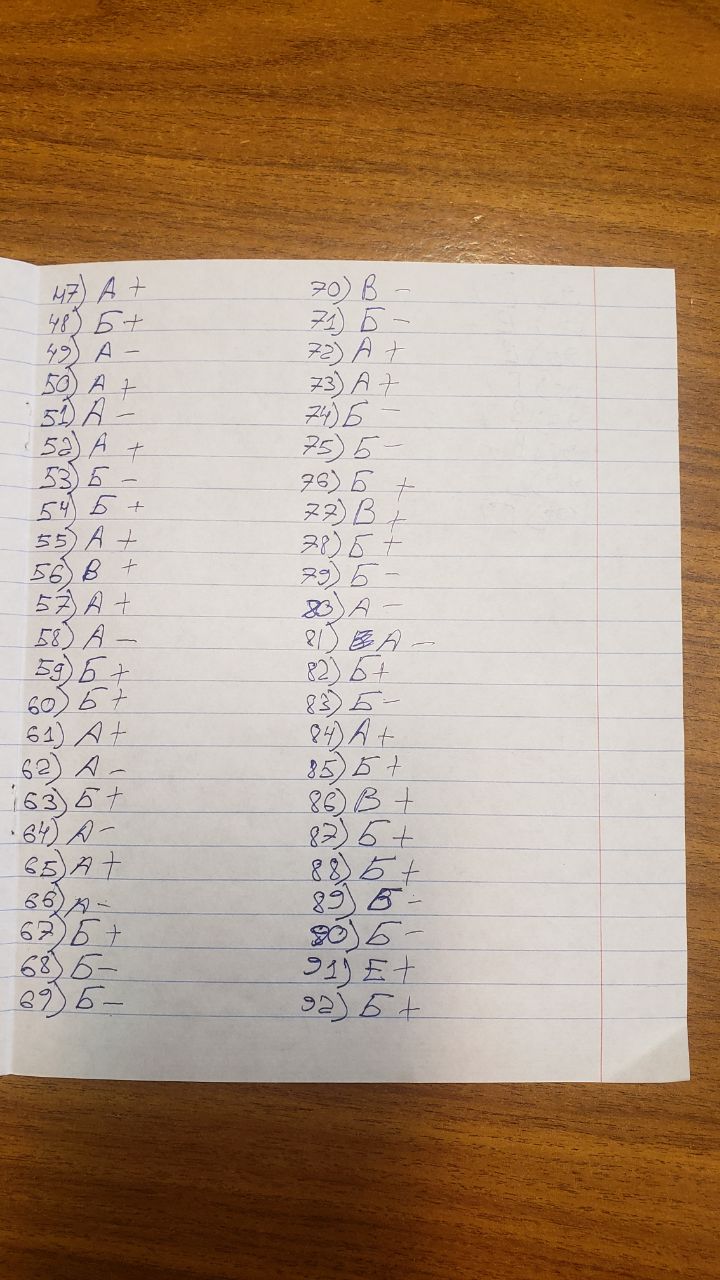 47) А +
48) Б +
49) А -
50) А +
51) А -
52) А +
53) Б -
54) Б +
55) А +
56) В +
57) А +
58) А -
59) Б +
60) Б +
61) А +
62) А -
63) Б +
64) А -
65) А +
66) А -
67) Б +
68) Б -
69) Б -
70) В -
71) Б -
72) А +
73) А +
74) Б -
75) Б -
76) Б +
77) В +
78) Б +
79) Б -
80) А -
81) А -
82) Б +
83) Б -
84) А +
85) Б +
86) В +
87) Б +
88) Б +
89) В -
90) Б -
91) Е +
92) Б +